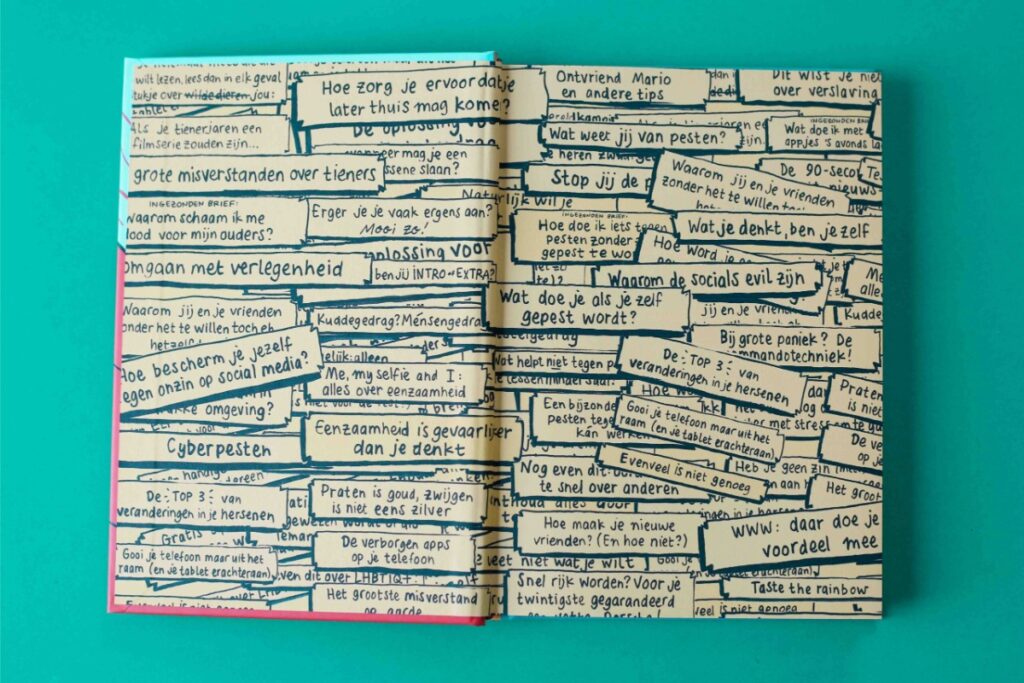 wilt lezen, lees dan in elk geval
stukje over wilde dieren jou:
Als je tienerjaren een
filmserie zouden zijn...
grote misverstanden over tieners
INGEZONDEN BRIEF:
Waarom schaam ik me
dood voor mijn ouders?
omgaan met verlegenheid
Waarom jij en je vrienden
onder het te willen toch
hetzelf
Hoe bescherm je jezelf
tegen onzin op social media?
omgeving?
Cyberpesten
De TOP 3 van
veranderingen in je hersenen
Gooi je telefoon maar uit het
raam (en je tablet erachteraan)
Hoe zorg je ervoor dat je
later thuis mag komen?
De oplossing voor
mag je een
slaan?
Natuurlijk wil je
Erger je je vaak ergens aan?
Mooi zo!
oplossing voor
ben JIJ INTRO OF EXTRA?
Kuddegedrag? Mensengedrag
alleen
Me, my selfie and I:
alles over eenzaamheid
Eenzaamheid is gevaarlijker
dan je denkt
Praten is goud, zwijgen
is niet eens zilver
De verborgen apps
op je telefoon
even dit over LHBTIQ+:
Het grootste misverstand
op aarde
Ontvriend Mario
en andere tips
Dit wist je niet
over verslaving
Wat weet jij van pesten?
INGEZONDEN BRIEF
Wat doe ik met
appjes 's avonds la
Stop jij de p
Waarom jij en je vrienden
zonder het te willen toch
De 90-seco
nieuws
INGEZONDEN BRIEF:
Hoe doe ik iets tegen
pesten zonder
gepest te wo
Wat je denkt, ben je zelf
Hoe word je
Waarom de socials evil zijn
Me
alle
Wat doe je als je zelf
gepest wordt?
jij en je vrienden
Kudde
Bij grote paniek? De
commandotechniek!
Wat helpt niet tegen p
De TOP 3 van
veranderingen in je hersenen
Praten
is niet
Een bijzonde
pesten tege
kan werken
Gooi je telefoon maar uit het
raam (en je tablet erachteraan)
met stress om te ga
De ve
op je
Evenveel is niet genoeg
Nog even dit:
te snel over anderen
Heb je geen zin
Het groot
Hoe maak je nieuwe
vrienden? (En hoe niet?)
WWW: daar doe je
voordeel mee
weet niet wat je wilt
Snel rijk worden? Voor je
twintigste gegarandeerd
Taste the rainbow
veel is niet genoeg